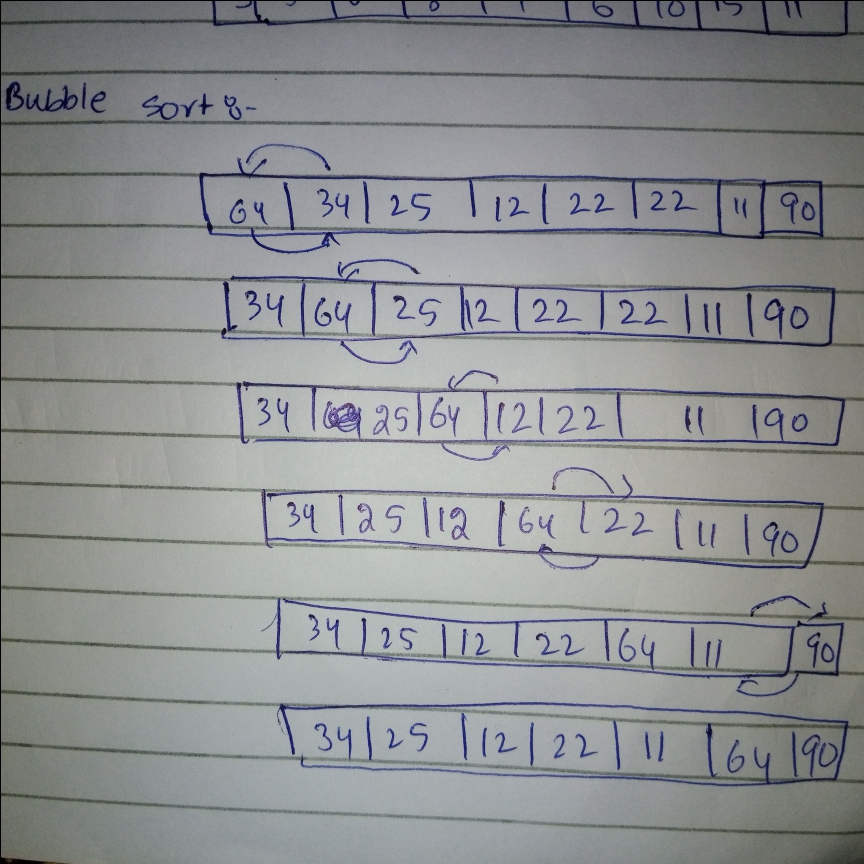 6 10 15 11
Bubble sort :-
64 34 25 12 22 22 11 90
34 64 25 12 22 22 11 90
34 25 64 12 22 11 90
34 25 12 64 22 11 90
34 25 12 22 64 11 90
34 25 12 22 11 64 90